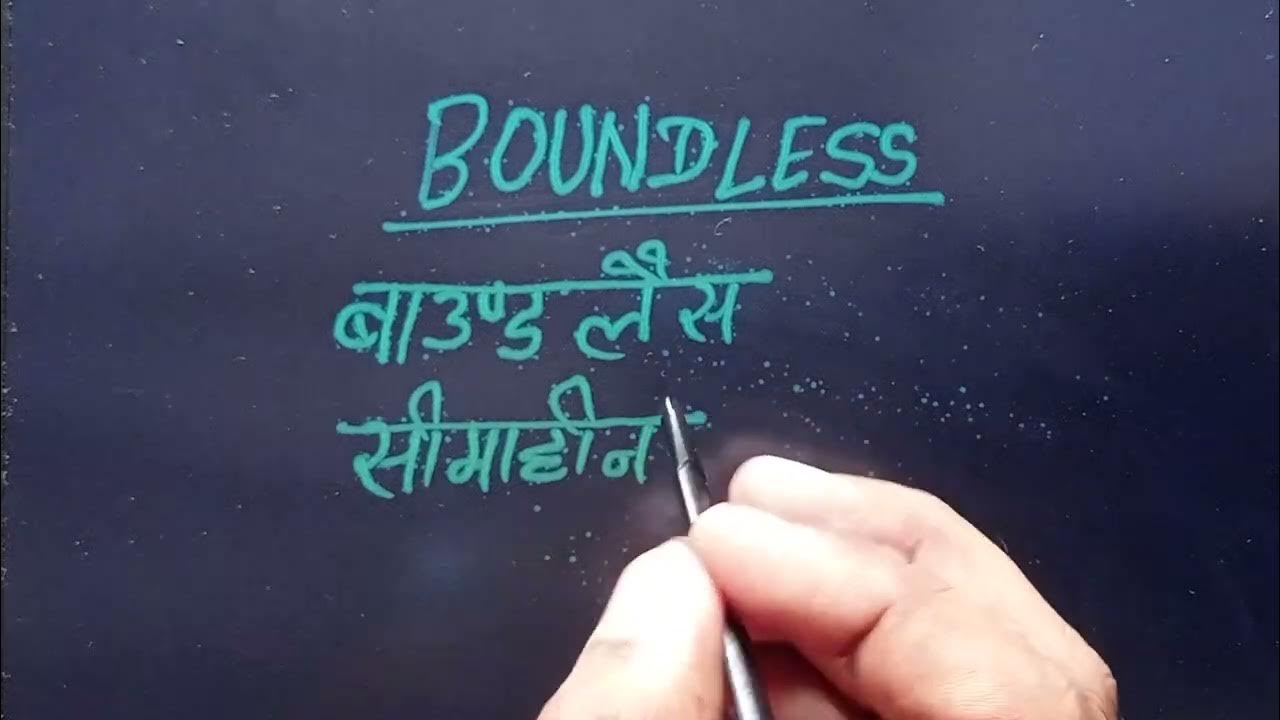 BOUNDLESS
बाउण्ड लैस
सीमाहीन